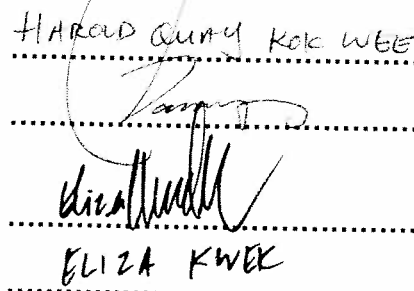 HAROLD QUAY KOK WEE
Eliza
ELIZA KWEK